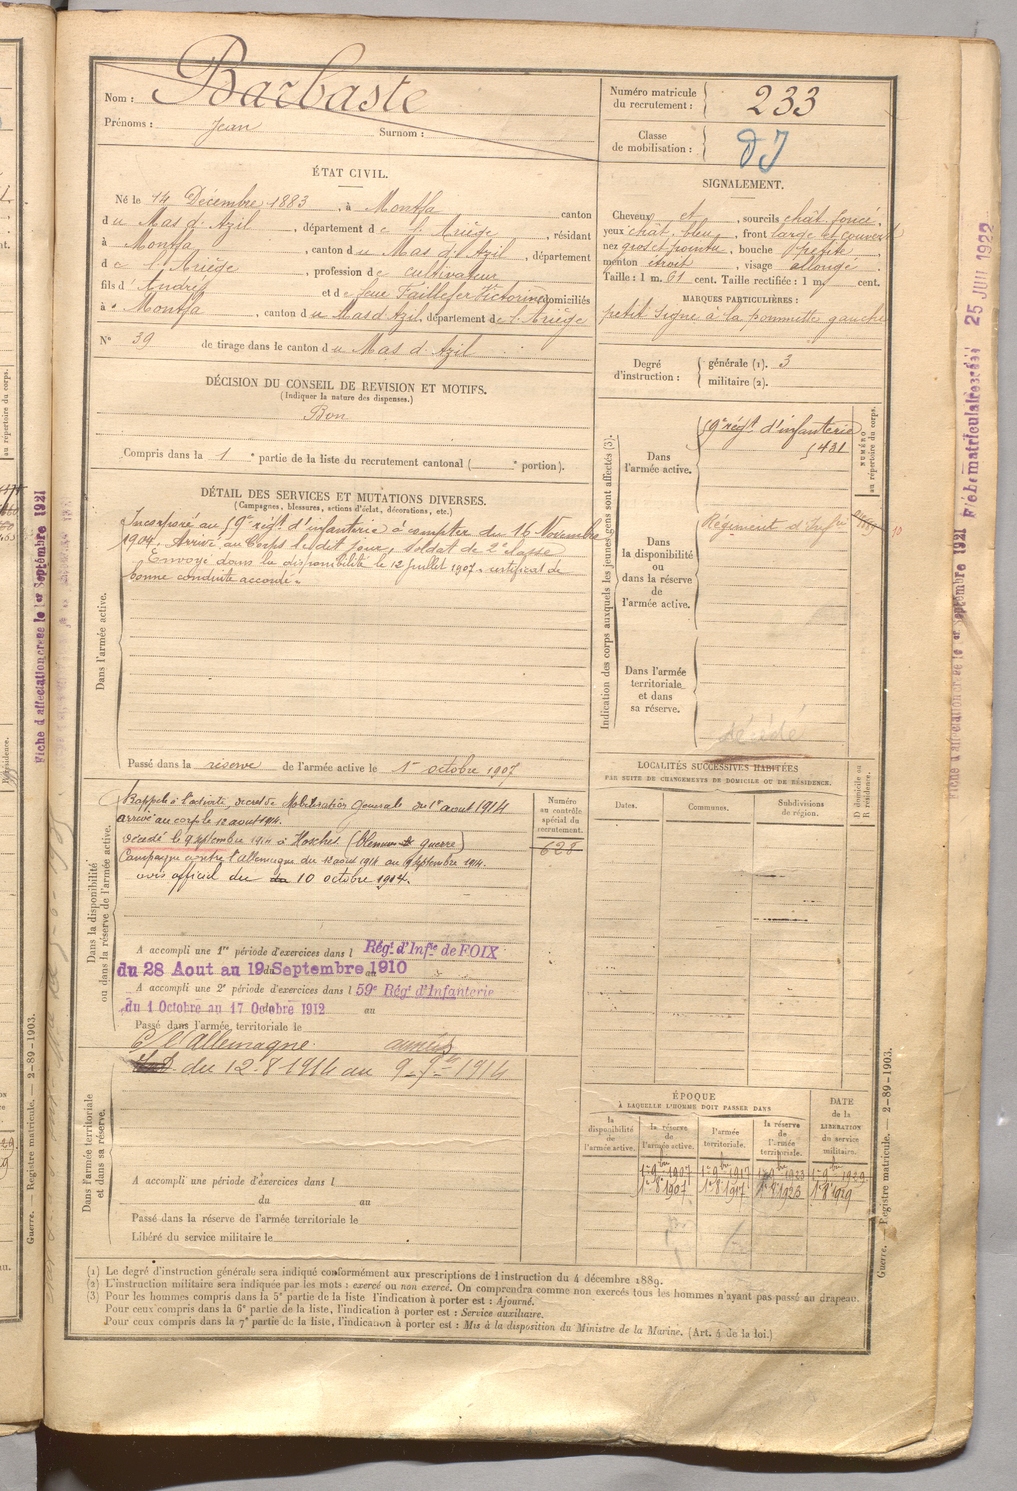 Nom : Barbaste
Prénoms : Jean Surnom :
Numéro matricule du recrutement : 233
Classe de mobilisation :
ÉTAT CIVIL.
Né le 14 Décembre 1883, à Montfa canton
du Mas d'Azil, département de l'Ariège, résidant
à Montfa, canton du Mas d'Azil, département
de l'Ariège, profession de cultivateur
fils d'André et de feue Faillefer Victorine domiciliés
à Montfa, canton du Mas d'Azil, département de l'Ariège
N° 39 de tirage dans le canton du Mas d'Azil
SIGNALEMENT.
Cheveux et, sourcils chât. foncé,
yeux chât. bleu, front large et couvert
nez gros et pointu, bouche petite
menton étroit, visage allongé.
Taille : 1 m. 61 cent. Taille rectifiée : 1 m. cent.
MARQUES PARTICULIÈRES :
petit signe à la pommette gauche
Degré d'instruction : générale (1). 3
militaire (2).
DÉCISION DU CONSEIL DE REVISION ET MOTIFS.
(Indiquer la nature des dispenses.)
Bon
Compris dans la 1e partie de la liste du recrutement cantonal ( e portion).
DÉTAIL DES SERVICES ET MUTATIONS DIVERSES.
(Campagnes, blessures, actions d'éclat, décorations, etc.)
Dans l'armée active.
Incorporé au 59e régt d'infanterie à compter du 16 Novembre
1904. Arrivé au Corps le dit jour, soldat de 2e classe
Envoyé dans la disponibilité le 12 juillet 1907. certificat de
bonne conduite accordé.
Passé dans la réserve de l'armée active le 1er octobre 1907
Indication des corps auxquels les jeunes gens sont affectés (3).
NUMÉRO au répertoire du corps.
Dans l'armée active.
59e régt d'infanterie
Dans la disponibilité ou dans la réserve de l'armée active.
Régiment d'Inf.
Dans l'armée territoriale et dans sa réserve.
décédé
Dans la disponibilité ou dans la réserve de l'armée active.
Rappelé à l'activité, décret de Mobilisation générale du 1er aout 1914
arrivé au corps le 12 aout 1914.
décédé le 9 septembre 1914 à (blessures de guerre)
Campagne contre l'allemagne du 12 aout 1914 au 9 septembre 1914.
avis officiel du 10 octobre 1914.
Numéro au contrôle spécial du recrutement.
628
A accompli une 1re période d'exercices dans l Régt d'Infie de FOIX
du 28 Aout au 19 Septembre 1910
A accompli une 2e période d'exercices dans l 59e Régt d'Infanterie
du 1 Octobre au 17 Octobre 1912 au
Passé dans l'armée territoriale le
C/ l'Allemagne.
du 12-8 1914 au 9-7bre 1914
Dans l'armée territoriale et dans sa réserve.
A accompli une période d'exercices dans l
du au
Passé dans la réserve de l'armée territoriale le
Libéré du service militaire le
LOCALITÉS SUCCESSIVES HABITÉES
PAR SUITE DE CHANGEMENTS DE DOMICILE OU DE RÉSIDENCE.
Dates. Communes. Subdivisions de région. D domicile ou R résidence.
ÉPOQUE
À LAQUELLE L'HOMME DOIT PASSER DANS
la disponibilité de l'armée active. la réserve de l'armée active. l'armée territoriale. la réserve de l'armée territoriale. DATE de la LIBÉRATION du service militaire.
(1) Le degré d'instruction générale sera indiqué conformément aux prescriptions de l'instruction du 4 décembre 1889.
(2) L'instruction militaire sera indiquée par les mots : exercé ou non exercé. On comprendra comme non exercés tous les hommes n'ayant pas passé au drapeau.
(3) Pour les hommes compris dans la 5e partie de la liste l'indication à porter est : Ajourné.
Pour ceux compris dans la 6e partie de la liste, l'indication à porter est : Service auxiliaire.
Pour ceux compris dans la 7e partie de la liste, l'indication à porter est : Mis à la disposition du Ministre de la Marine. (Art. 4 de la loi.)
Guerre. — Registre matricule. — 2-89-1903.
Fiche d'affectation créée le 1er Septembre 1921
Fiche matriculaire créée 25 JUIL 1922
Fiche d'affectation créée le 1er Septembre 1921
Guerre. — Registre matricule. — 2-89-1903.